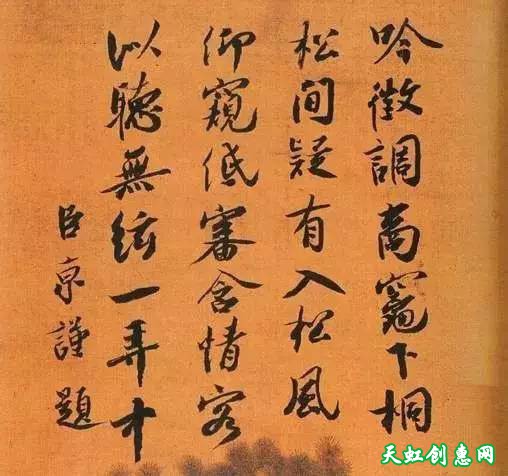 吟徵調商竈下桐
松間疑有入松風
仰窺低審含情客
似聽無絃一弄中
臣京謹題
天虹创惠网